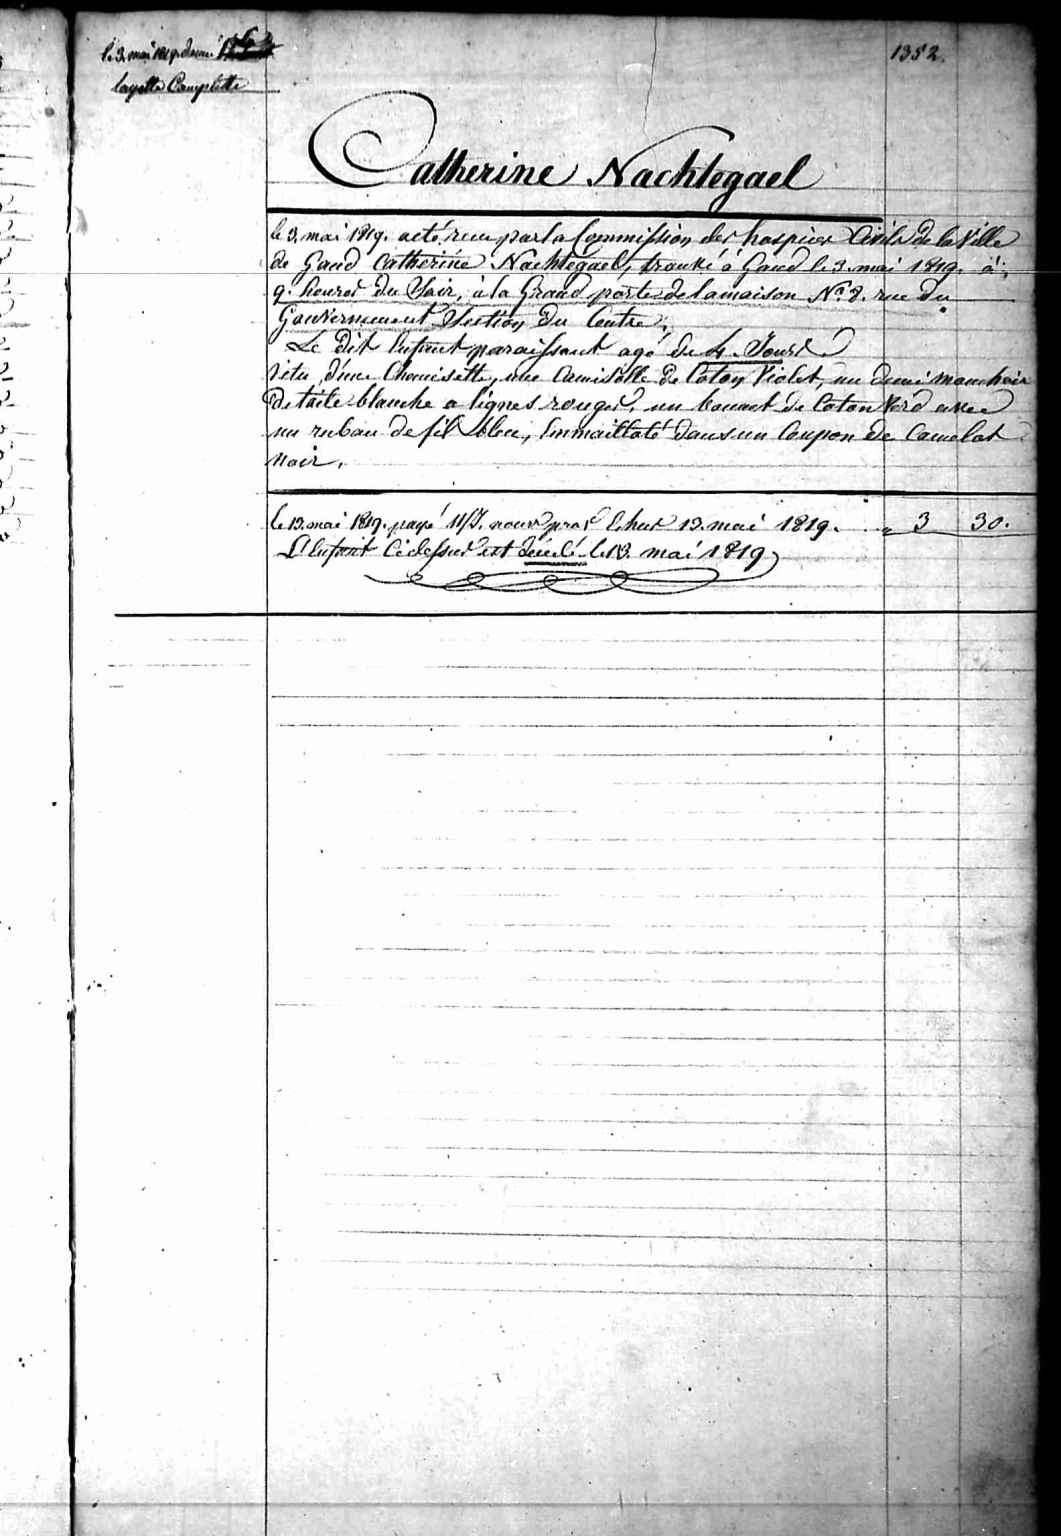 le 3. mai 1819. donné
layette Complette
1352.
Catherine Nachtegael
le 3. mai 1819. a eté recu par la Commission des hospices Civils de la Ville
de Gand Catherine Nachtegael, trouvé à Gand le 3. mai 1819. à
9. heures du Soir, à la Grand porte de la maison No. 8. rue du
Gouvernement Section du Centre.
Le dit Enfant paraissant agé de 4. Jours.
Vetu d'une Chemisette, une Camisolle de Coton Violet, un demi mouchoir
de toile blanche a lignes rouges, un bonnet de Coton Verd avec
un ruban de fil bleu, Emmailloté dans un Coupon de Camelot
noir.
le 13. mai 1819. payé nour Echue 13. mai 1819. „ 3 30.
L'Enfant Cidessus est décédé le 13. mai 1819